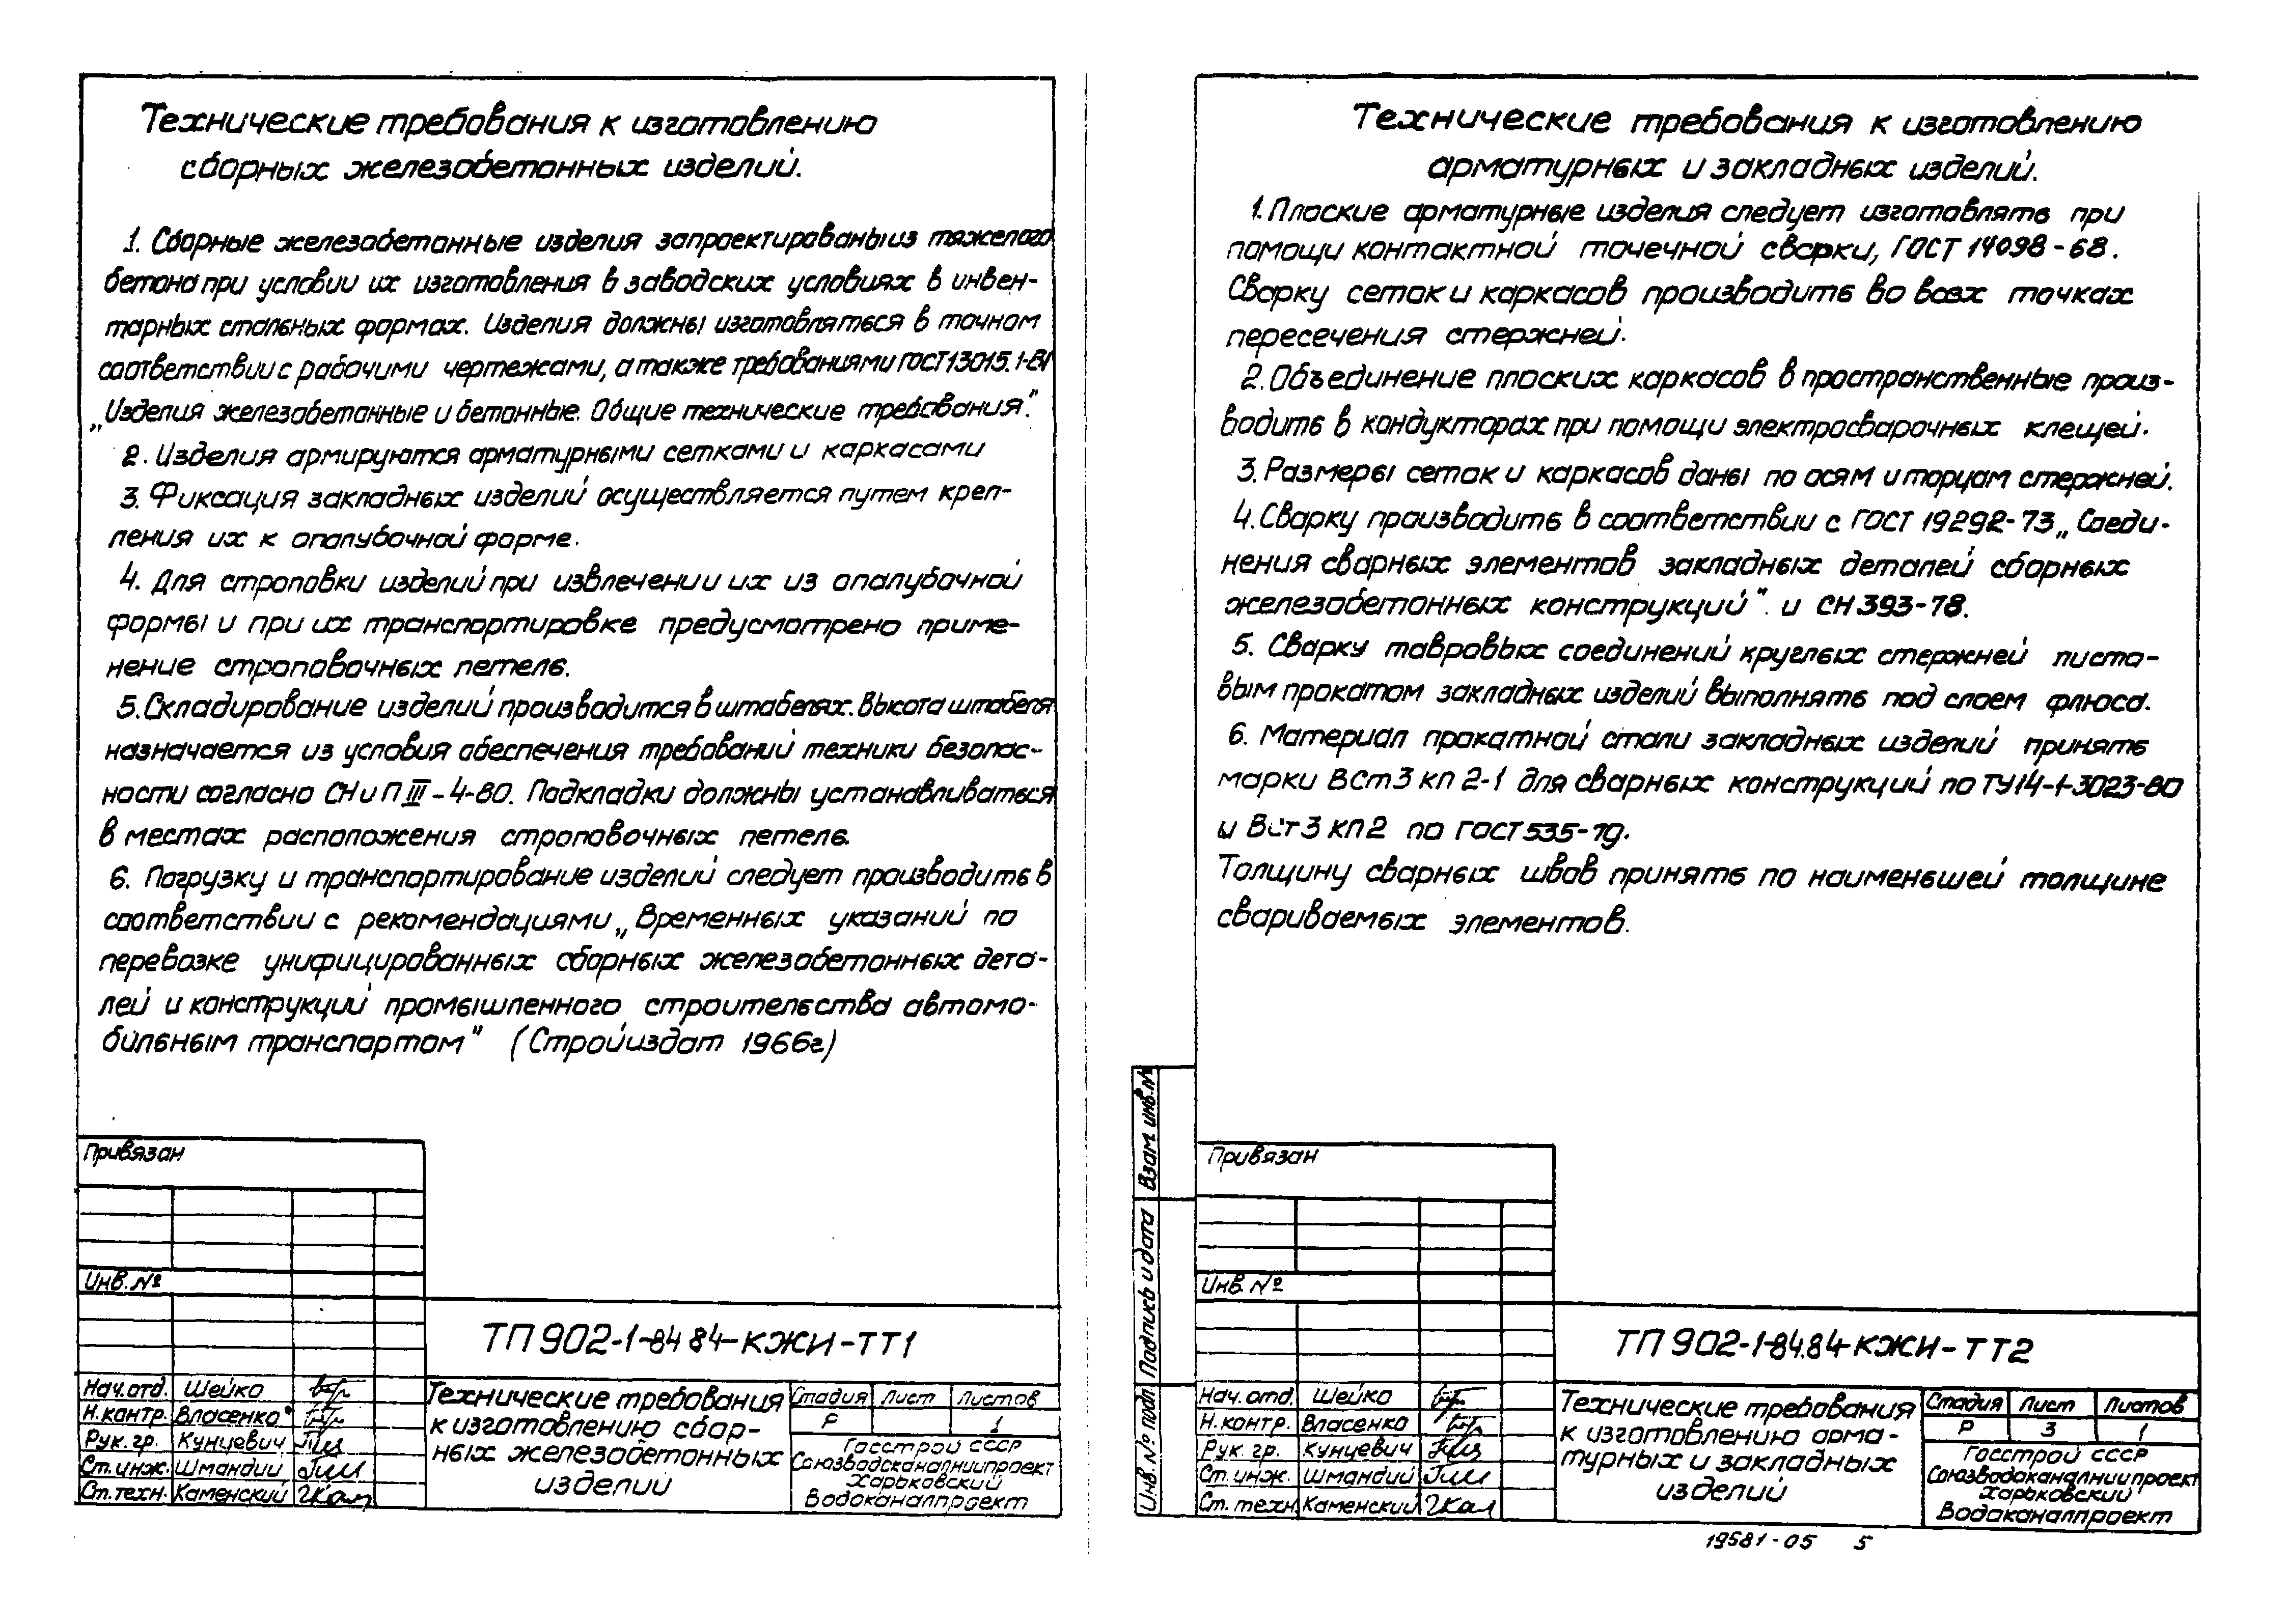 Технические требования к изготовлению
сборных железобетонных изделий.
1. Сборные железобетонные изделия запроектированы из тяжелого
бетона при условии их изготовления в заводских условиях в инвен-
тарных стальных формах. Изделия должны изготовляться в точном
соответствии с рабочими чертежами, а также требованиями ГОСТ 13015.1-81
„Изделия железобетонные и бетонные. Общие технические требования".
2. Изделия армируются арматурными сетками и каркасами
3. Фиксация закладных изделий осуществляется путем креп-
ления их к опалубочной форме.
4. Для строповки изделий при извлечении их из опалубочной
формы и при их транспортировке предусмотрено приме-
нение строповочных петель.
5. Складирование изделий производится в штабелях. Высота штабеля
назначается из условия обеспечения требований техники безопас-
ности согласно СНиП III-4-80. Подкладки должны устанавливаться
в местах расположения строповочных петель.
6. Погрузку и транспортирование изделий следует производить в
соответствии с рекомендациями „Временных указаний по
перевозке унифицированных сборных железобетонных дета-
лей и конструкций промышленного строительства автомо-
бильным транспортом" (Стройиздат 1966г)
Привязан
Инв. №
ТП 902-1-84 84-КЖИ-ТТ1
Нач. отд. Шейко
Н. контр. Власенко
Рук. гр. Кунцевич
Ст. инж. Шмандий
Ст. техн. Каменский
Технические требования
к изготовлению сбор-
ных железобетонных
изделий
Стадия Лист Листов
Р 1
Госстрой СССР
Союзводоканалниипроект
Харьковский
Водоканалпроект
Технические требования к изготовлению
арматурных и закладных изделий.
1. Плоские арматурные изделия следует изготовлять при
помощи контактной точечной сварки, ГОСТ 14098-68.
Сварку сеток и каркасов производить во всех точках
пересечения стержней.
2. Объединение плоских каркасов в пространственные произ-
водить в кондукторах при помощи электросварочных клещей.
3. Размеры сеток и каркасов даны по осям и торцам стержней.
4. Сварку производить в соответствии с ГОСТ 19292-73 „Соеди-
нения сварных элементов закладных деталей сборных
железобетонных конструкций". и СН 393-78.
5. Сварку тавровых соединений круглых стержней листо-
вым прокатом закладных изделий выполнять под слоем флюса.
6. Материал прокатной стали закладных изделий принять
марки ВСт3 кп 2-1 для сварных конструкций по ТУ14-1-3023-80
и ВСт3 КП2 по ГОСТ 535-79.
Толщину сварных швов принять по наименьшей толщине
свариваемых элементов.
Взам. инв. №
Подпись и дата
Инв. № подл.
Привязан
Инв. №
ТП 902-1-84.84-КЖИ-ТТ2
Нач. отд. Шейко
Н. контр. Власенко
Рук. гр. Кунцевич
Ст. инж. Шмандий
Ст. техн. Каменский
Технические требования
к изготовлению арма-
турных и закладных
изделий
Стадия Лист Листов
Р 3 1
Госстрой СССР
Союзводоканалниипроект
Харьковский
Водоканалпроект
19581-05 5